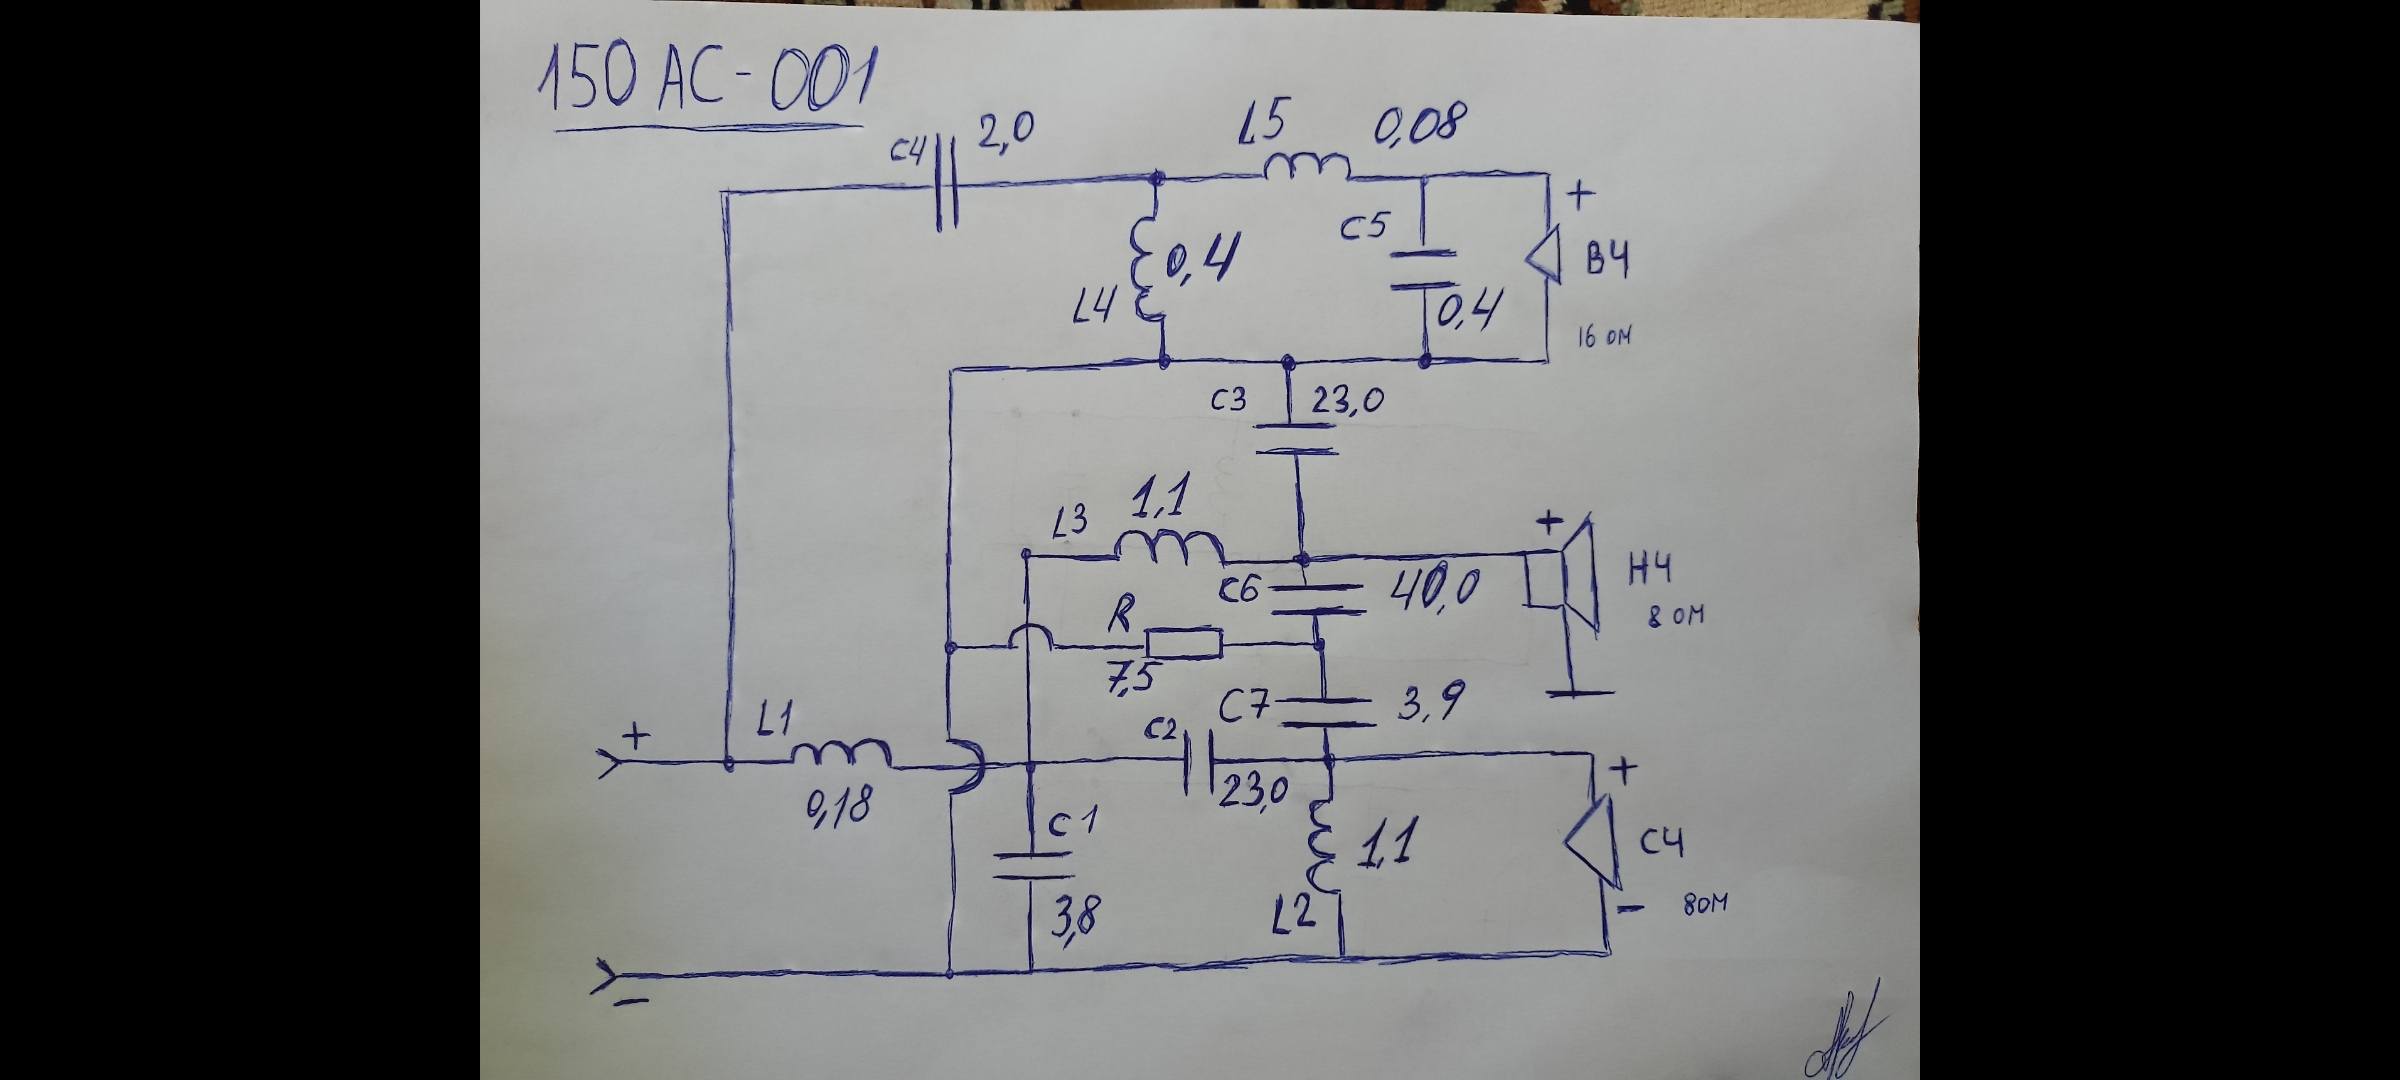 150 АС-001
C4 2,0
L5 0,08
+
C5
0,4
L4
ВЧ
0,4
16 Ом
C3 23,0
L3 1,1
+
НЧ
8 Ом
C6 40,0
R
7,5
C7 3,9
C2
23,0
+
L1
0,18
+
C1
3,8
1,1
L2
СЧ
8Ом
-
-